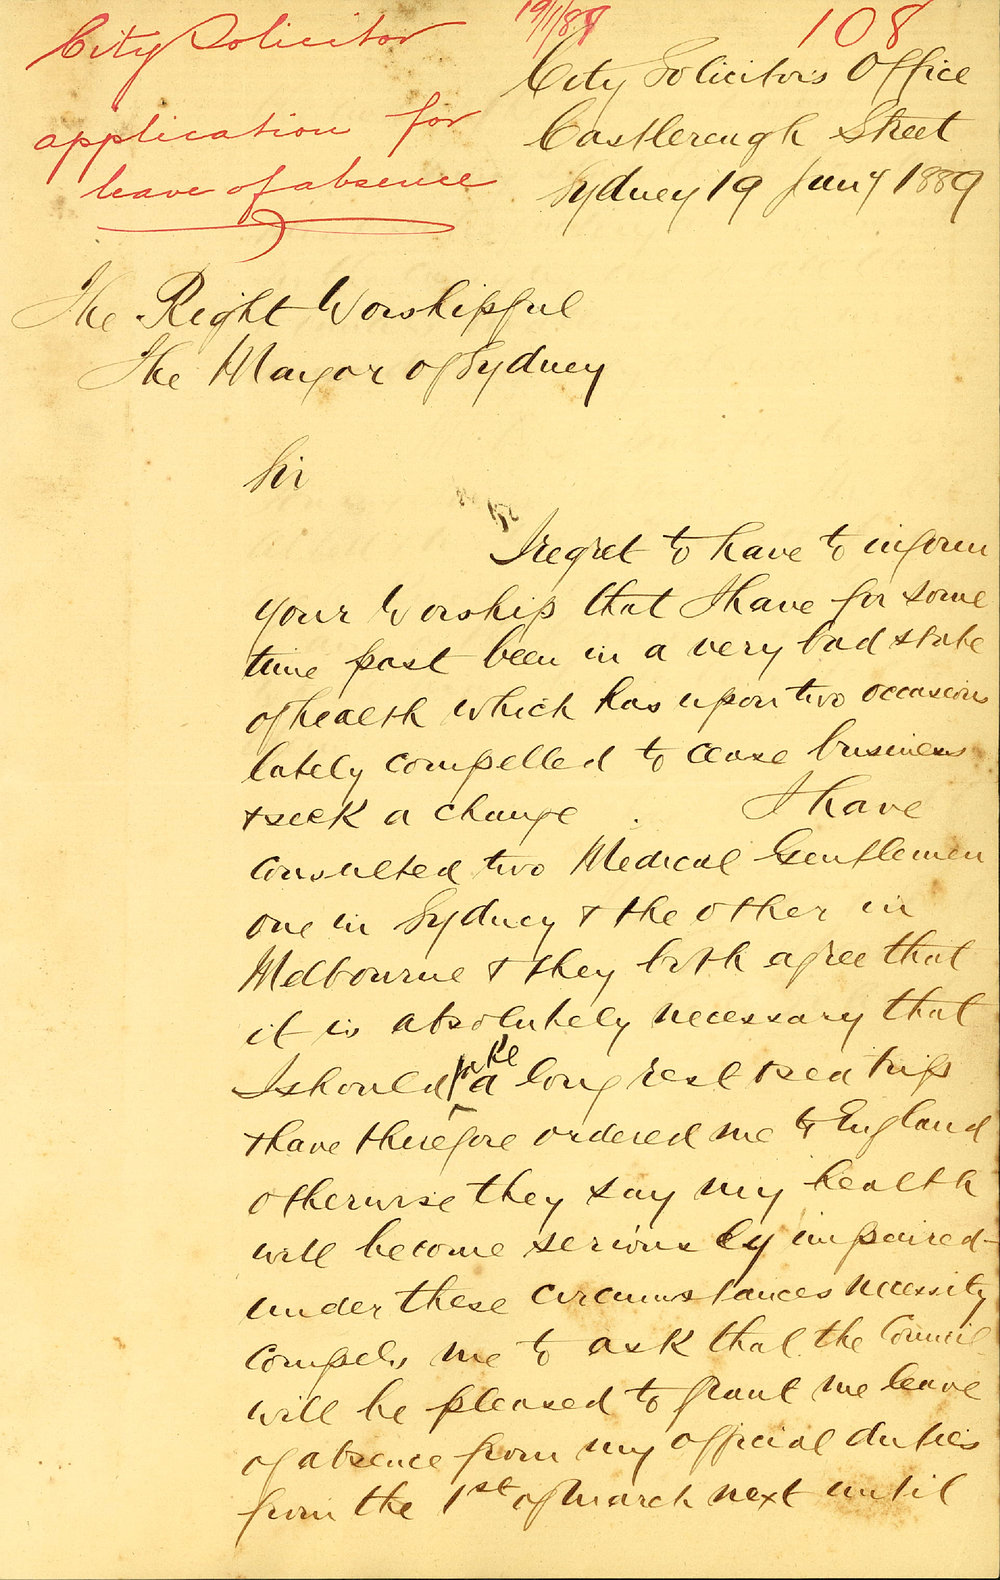 City Solicitor
application for
leave of absence
108
City Solicitor's Office
Castlereagh Street
Sydney 19 Jany 1889
The Right Worshipful
The Mayor of Sydney
Sir
I regret to have to inform
your Worship that I have for some
time past been in a very bad state
of health which has upon two occasions
lately compelled to cease business
& seek a change . I have
consulted two Medical Gentlemen
one in Sydney & the other in
Melbourne & they both agree that
it is absolutely necessary that
I should take a long rest & sea trip
& have therefore ordered me to England
otherwise they say my health
will become seriously impaired -
under these circumstances necessity
compels me to ask that the Council
will be pleased to grant me leave
of absence from my official duties
from the 1st of March next until